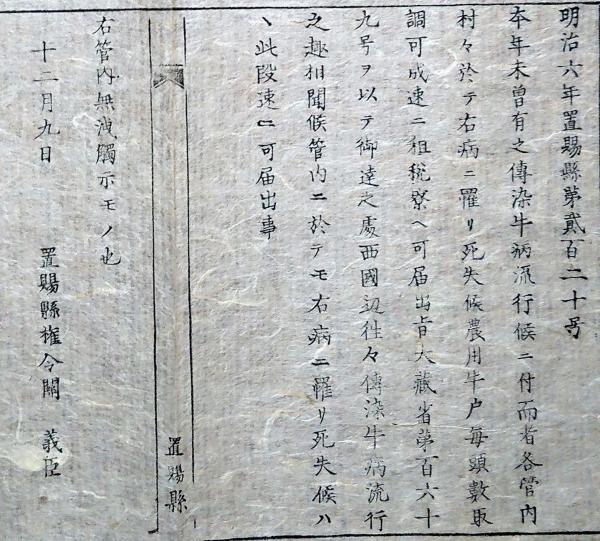 明治六年置賜縣第貳百二十号
本年未曽有之傳染牛病流行候ニ付而者各管内
村々於テ右病ニ罹リ死失候農用牛戸毎頭數取
調可成速ニ租税寮ヘ可届出旨大藏省第百六十
九号ヲ以テ御達之處西國辺往々傳染牛病流行
之趣相聞候管内ニ於テモ右病ニ罹リ死失候ハ
ヽ此段速ニ可届出事
置賜縣
右管内無洩觸示モノ也
十二月九日
置賜縣権令關 義臣